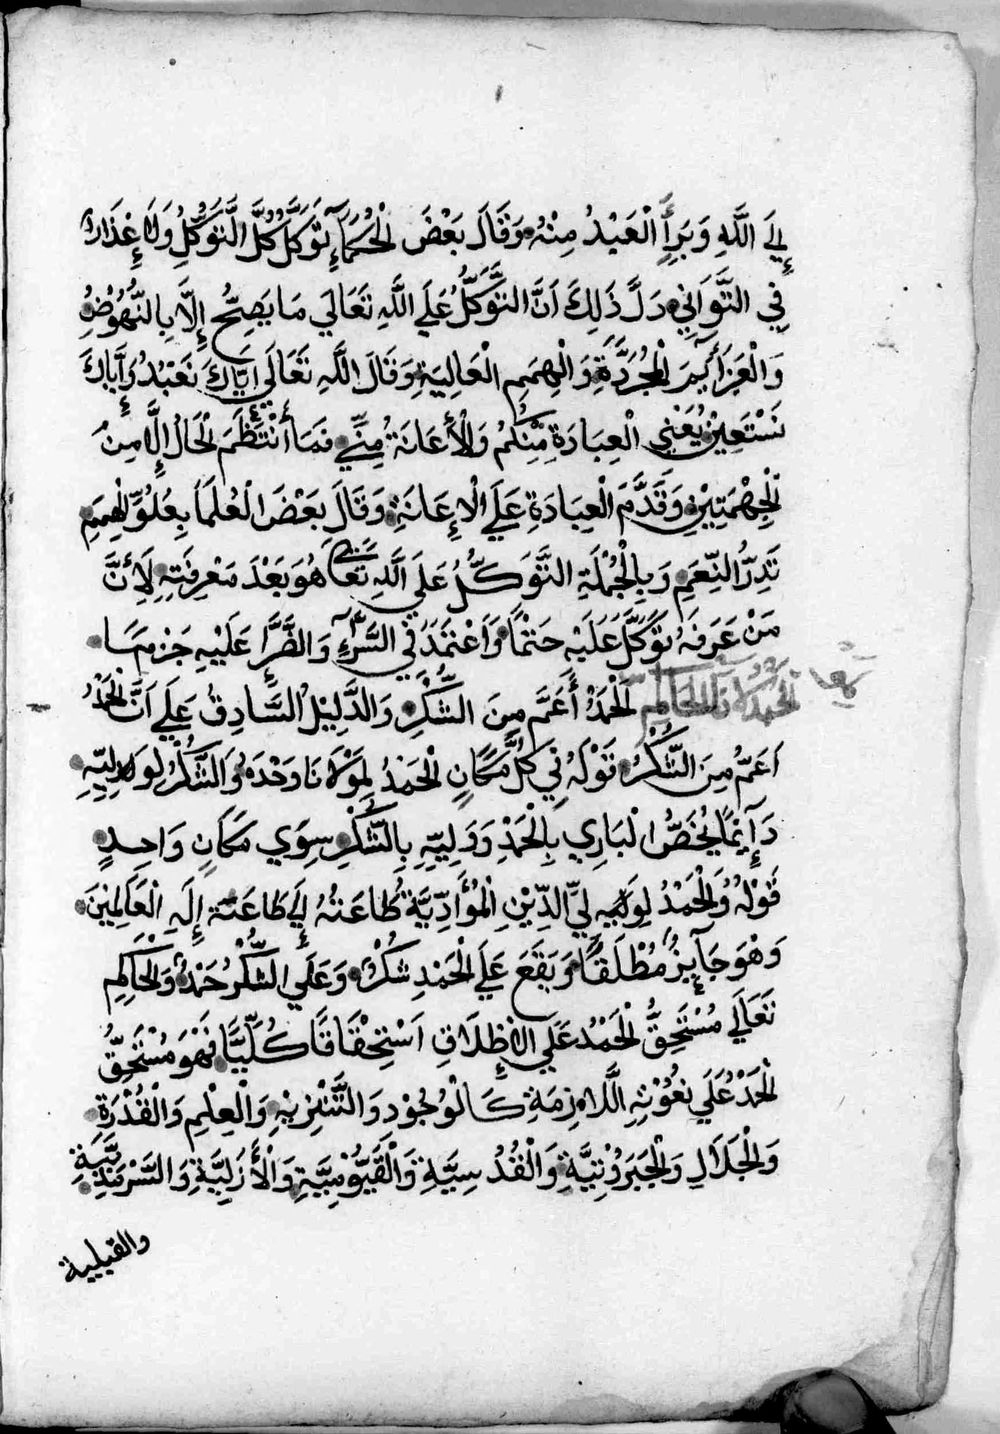 إِلَي اللَّهِ وَبَرِأَ الْعَبْدُ مِنْهُ وَقَالَ بَعْضَ الْحُكَمَآءِ تَوَكَّلْ كُلَّ التَّوَكُّلِ وَلَا عْذَارَ
فِي التَّوَانِي دَلَّ ذَلِكَ اَنَّ التَّوَكُّلُ عَلَي اللَّهِ تَعَالَي مَا يَصِحُّ إِلَّا بِالنُّهُوْضِ
وَالْعَزَآئِمِ الْمُجَرَّدَةِ وَالْهِمَمِ الْعَالِيَةِ وَقَالَ اللَّهِ تَعَالَي اِيَّاكَ نَعْبُدُ وَإِيَّاكَ
نَسْتَعِيْنُ يُعْنِي الْعِبَادَةِ مِّنْكُمْ وَالْأَعَانَةُ مِنِّي فَمَا أنْتَظَمَ الْحَالُ إِلَّا مِنْ
الْجِهْتَيْنِ وَقَدَّمَ الْعِبَادَةِ عَلَي الْإِعَانَةِ وَقَالَ بَعْضَ الْعُلَمَا بِعُلُوِّ الْهِمَمِ
تَدِرُّ النِّعَمِ وَبِالْجُمْلَةِ التَّوَكُّلُ عَلَي اللَّهِ تَعَالَي هُوَ بَعْدَ مَعْرِفَتِهِ لِأَنَّ
مَنْ عَرَفَهُ تَوَكَّلَ عَلَيْهِ حَتْمًا وَاَعْتَمَدَ فِي السَّرَّآءِ وَالضَّرَّإِ عَلَيْهِ جَزْمًا
الْحَمْدُ أَعَمَّ مِنَ الشُّكْرِ وَالدَّلِيْلُ السَّادِقُ عَلَي اَنَّ الْحَمْدُ
اَعَمُّ مِنَ الشُّكْرُ قَوْلَهُ فِي كُلَّ مَكَانٍ الْحَمْدُ لِمَوْلَانَا وَحْدَهُ وَالشُّكْرُ لِوَلِيِّهِ
دَآئِمًا يُخَصُّ الْبَارِي بِالْحَمْدِ وَوَلِيِّهِ بِالشُّكْرِ سِوَي مَكَانٍ وَاحِدٍ
قَوْلَهُ وَالْحَمْدُ لِوَلِيِّهِ الدِّيْنِ الْمُؤَادِّيَّةُ طَاعَتُهُ إِلَي طَاعَتِهِ إِلَهِ الْعَالَمِيْنَ
وَهْوَ جَآيِزُ مُطْلَقًا وَيَقَعَ عَلَي الْحَمْدِ شُكْرٌ وَعَلَي الشُّكْرُ حَمْدٌ وَالْحَاكِمِ
تَعَالَي مُسْتَحِقُّ الْحَمْدُ عَلَي الْإِطْلَاقِ اَسْتِحْقَاقًا كُلِّيًّا فَهْوَ مُسْتَحِقُّ
الْحَمْدُ عَلَي نُعُوْتِهِ اللَّازِمَةِ كَالْوُجُوْدِ وَالتَّنْزِيْهِ وَالْعِلْمِ وَالْقُدْرَةِ
وَالْجَلَالِ وَالْجَبَرُوْتِيَّةِ وَالْقُدْسِيَّةِ وَالْقَيُّوْمِيَّةِ وَالْأَزَلِيَّةِ وَالسَّرْمَدِيَّةِ
والقبلية